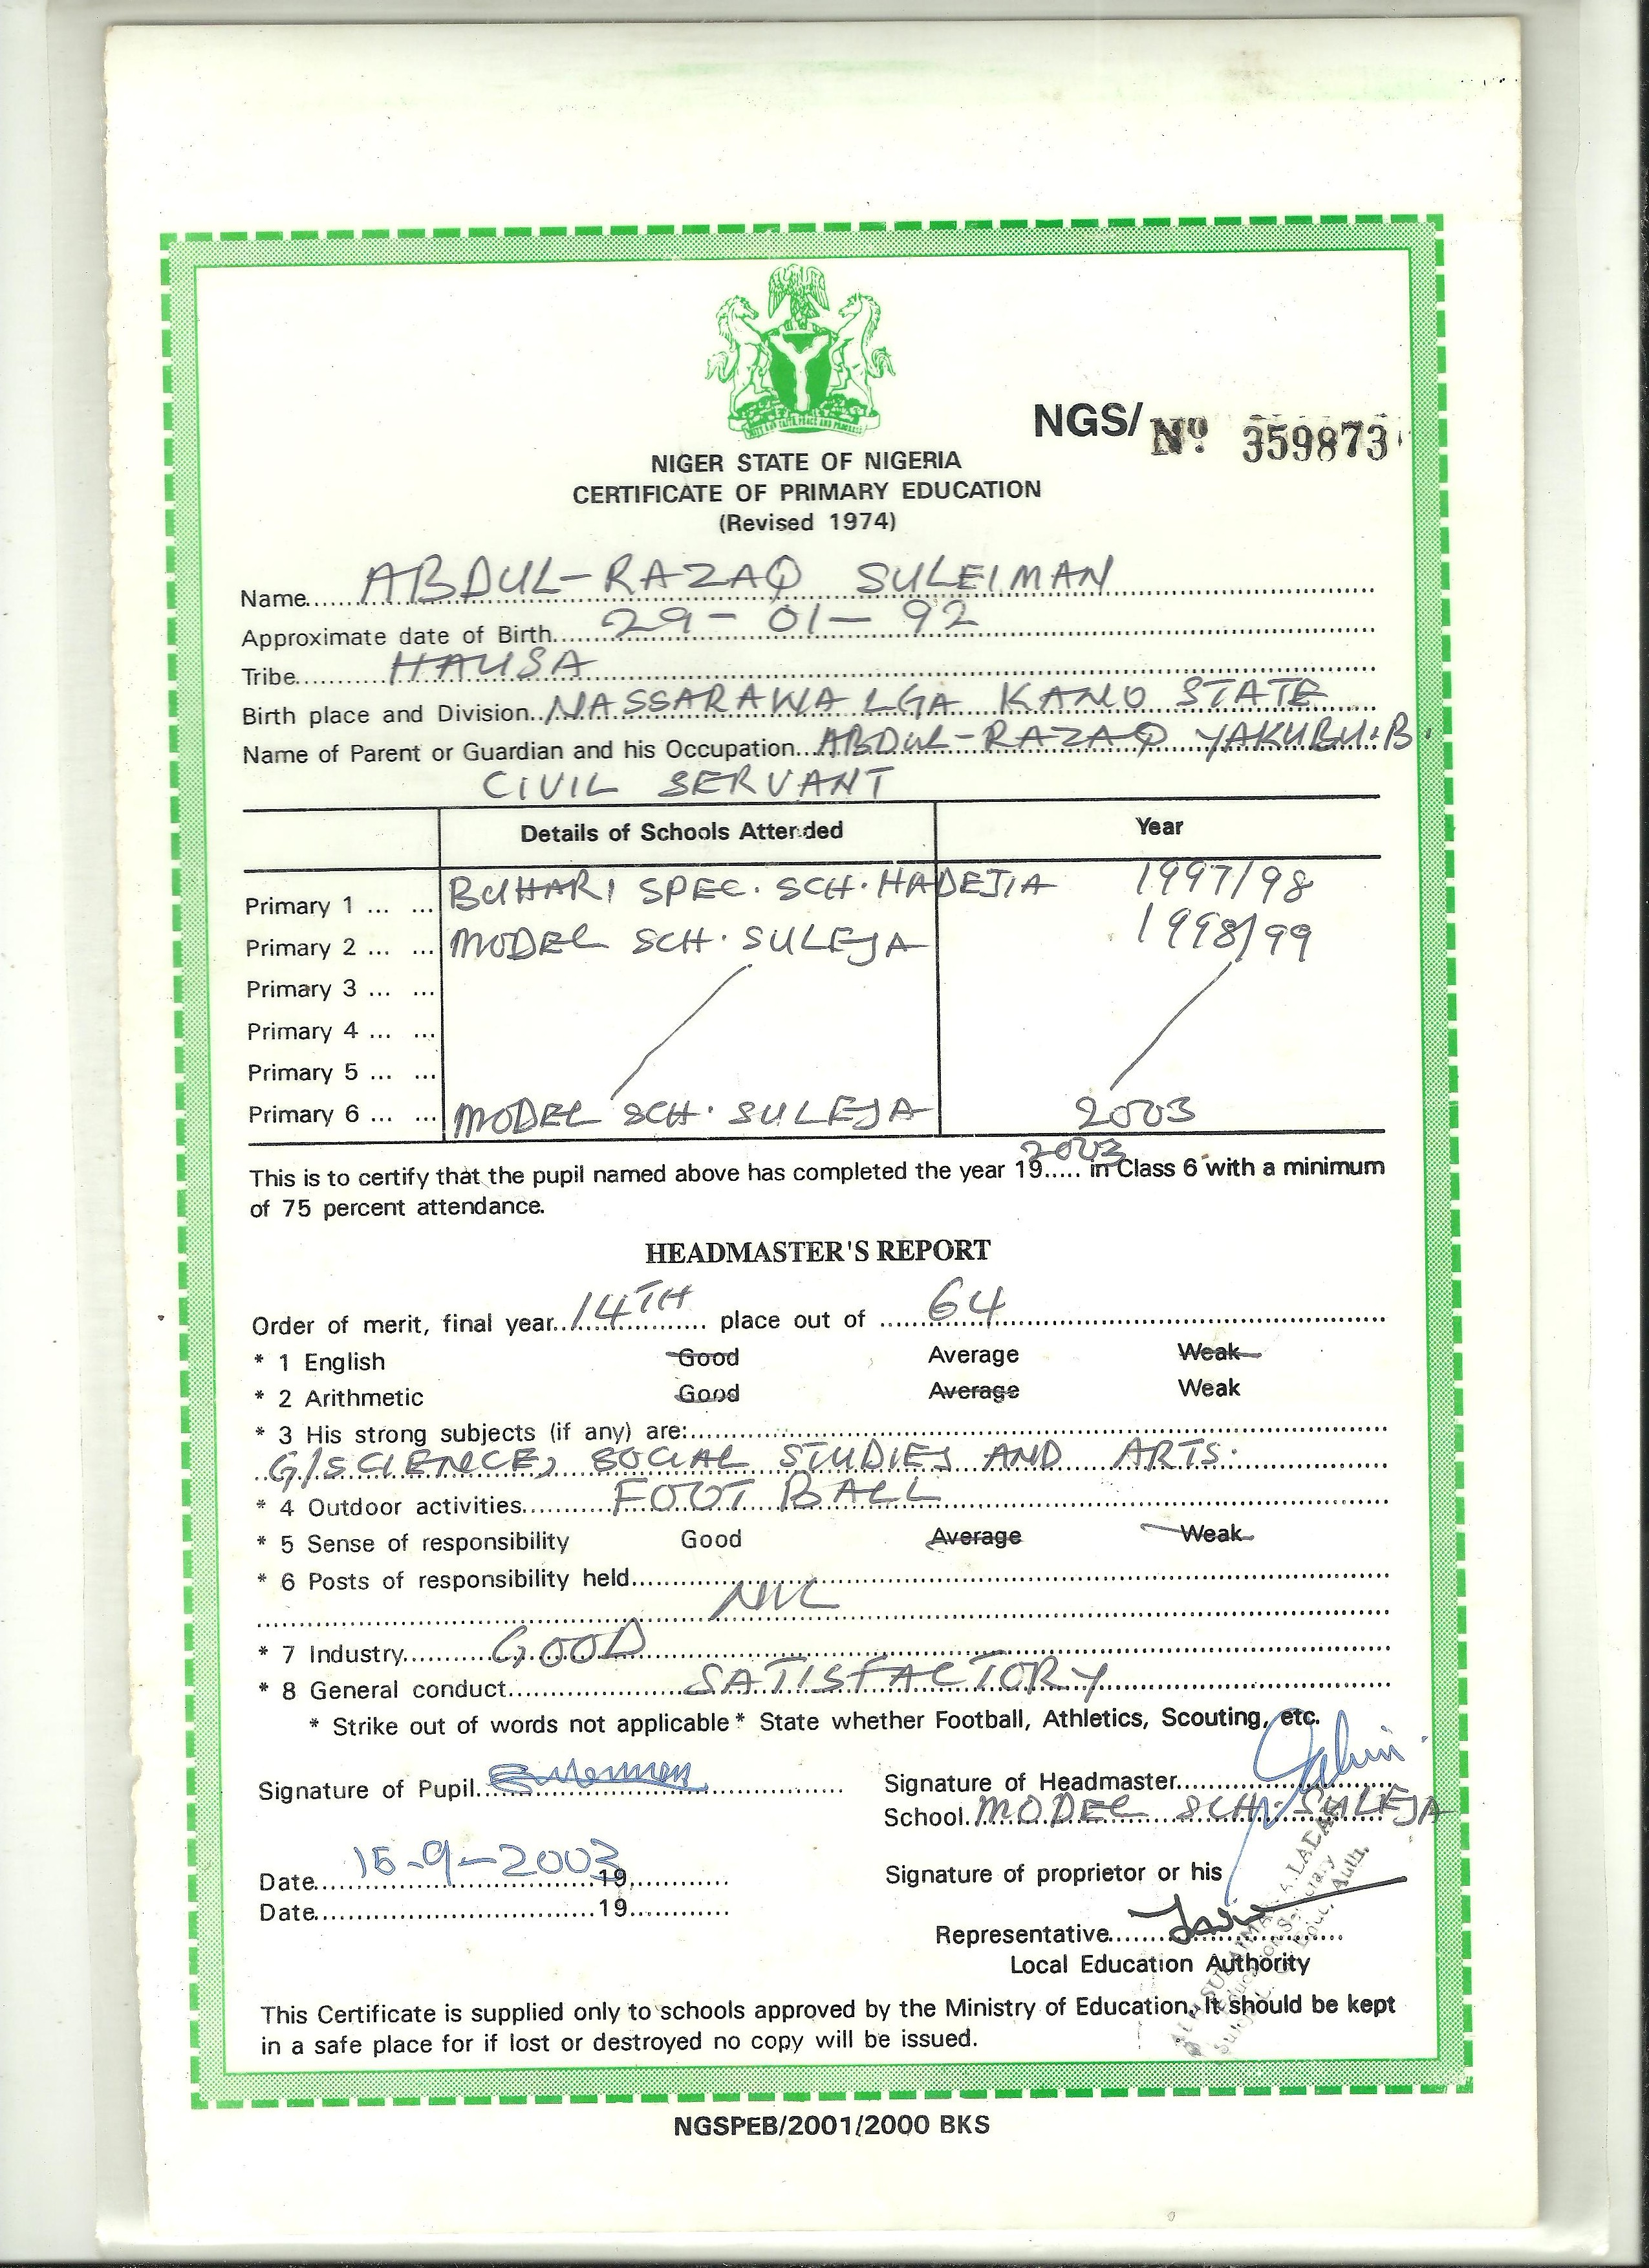 NGS/ Nº 359873
NIGER STATE OF NIGERIA
CERTIFICATE OF PRIMARY EDUCATION
(Revised 1974)
Name ABDUL-RAZAQ SULEIMAN
Approximate date of Birth 29-01-92
Tribe HAUSA
Birth place and Division NASSARAWA LGA KANO STATE
Name of Parent or Guardian and his Occupation ABDUL-RAZAQ YAKUBU.B.
CIVIL SERVANT
Details of Schools Attended Year
Primary 1 ... ... BUHARI SPEC. SCH. HADEJIA 1997/98
Primary 2 ... ... MODEL SCH. SULEJA 1998/99
Primary 3 ... ...
Primary 4 ... ...
Primary 5 ... ...
Primary 6 ... ... MODEL SCH. SULEJA 2003
2003
This is to certify that the pupil named above has completed the year 19..... in Class 6 with a minimum
of 75 percent attendance.
HEADMASTER'S REPORT
Order of merit, final year 14TH place out of 64
* 1 English Good Average Weak
* 2 Arithmetic Good Average Weak
* 3 His strong subjects (if any) are:
G/SCIENCE, SOCIAL STUDIES AND ARTS.
* 4 Outdoor activities FOOT BALL
* 5 Sense of responsibility Good Average Weak
* 6 Posts of responsibility held
NIL
* 7 Industry GOOD
* 8 General conduct SATISFACTORY
* Strike out of words not applicable * State whether Football, Athletics, Scouting, etc.
Signature of Pupil Signature of Headmaster
School MODEL SCH. SULEJA
Date 15-9-2003 19 Signature of proprietor or his
Date 19
Representative
Local Education Authority
This Certificate is supplied only to schools approved by the Ministry of Education. It should be kept
in a safe place for if lost or destroyed no copy will be issued.
NGSPEB/2001/2000 BKS